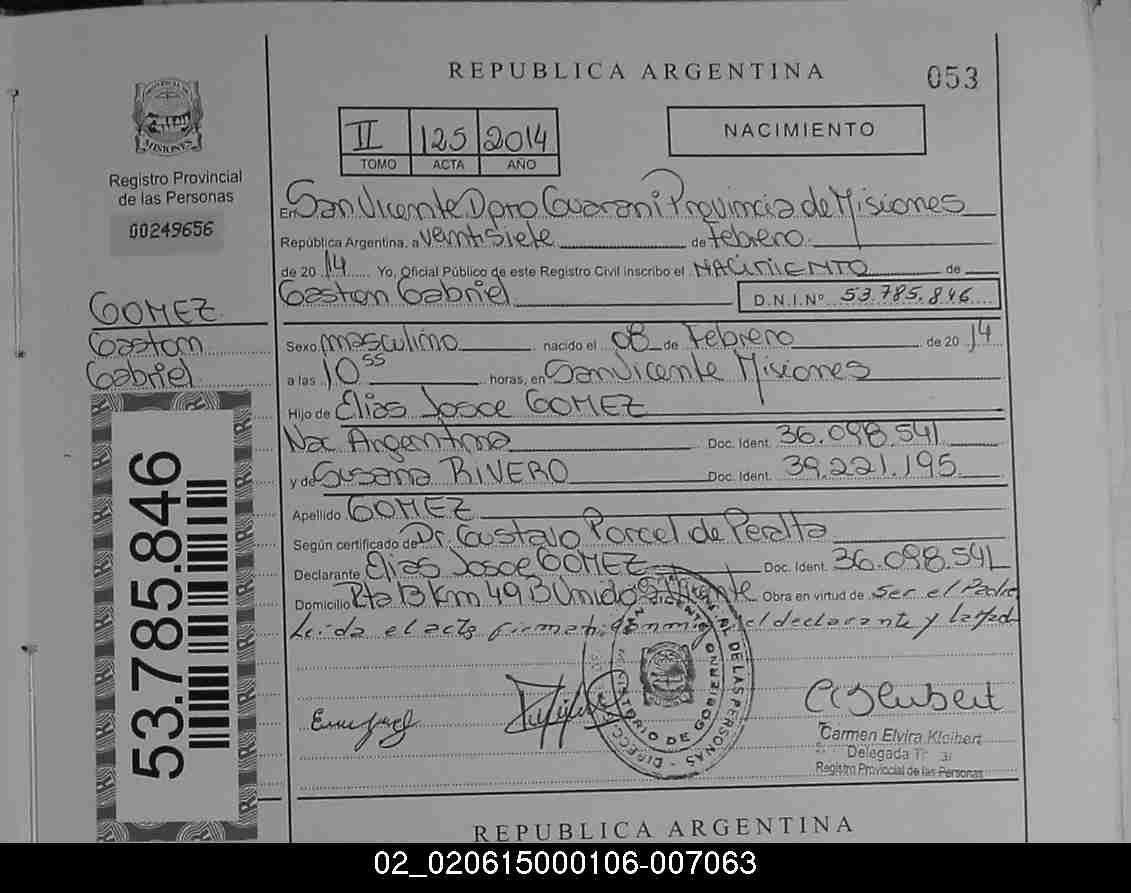 REPUBLICA ARGENTINA
053
II 125 2014
TOMO ACTA AÑO
NACIMIENTO
MISIONES
Registro Provincial
de las Personas
00249656
GOMEZ
Gaston
Gabriel
53.785.846
En San Vicente Dpto Guarani Provincia de Misiones
República Argentina, a veintisiete de febrero
de 2014 Yo, Oficial Público de este Registro Civil inscribo el NACIMIENTO de
Gaston Gabriel D.N.I.Nº 53.785.846
Sexo masculino nacido el 08 de Febrero de 2014
a las 10 55 horas, en San Vicente Misiones
Hijo de Elias Josoe GOMEZ
Nac Argentina Doc. Ident. 36.098.541
y de Susana RIVERO Doc. Ident. 39.221.195
Apellido GOMEZ
Según certificado de Dr. Gustavo Porcel de Peralta
Declarante Elias Josoe GOMEZ Doc. Ident. 36.098.541
Domicilio Rta 13 Km 49 B Unido S. Vicente Obra en virtud de ser el Padre
Leida el acta firman el declarante y la
DE LAS PERSONAS
MINISTERIO DE GOBIERNO
Carmen Elvira Kleihert
Delegada
Registro Provincial de las Personas
REPUBLICA ARGENTINA
02_020615000106-007063